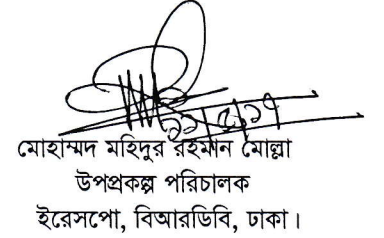 মোহাম্মদ মহিদুর রহমান মোল্লা
উপপ্রকল্প পরিচালক
ইরেসপো, বিআরডিবি, ঢাকা।